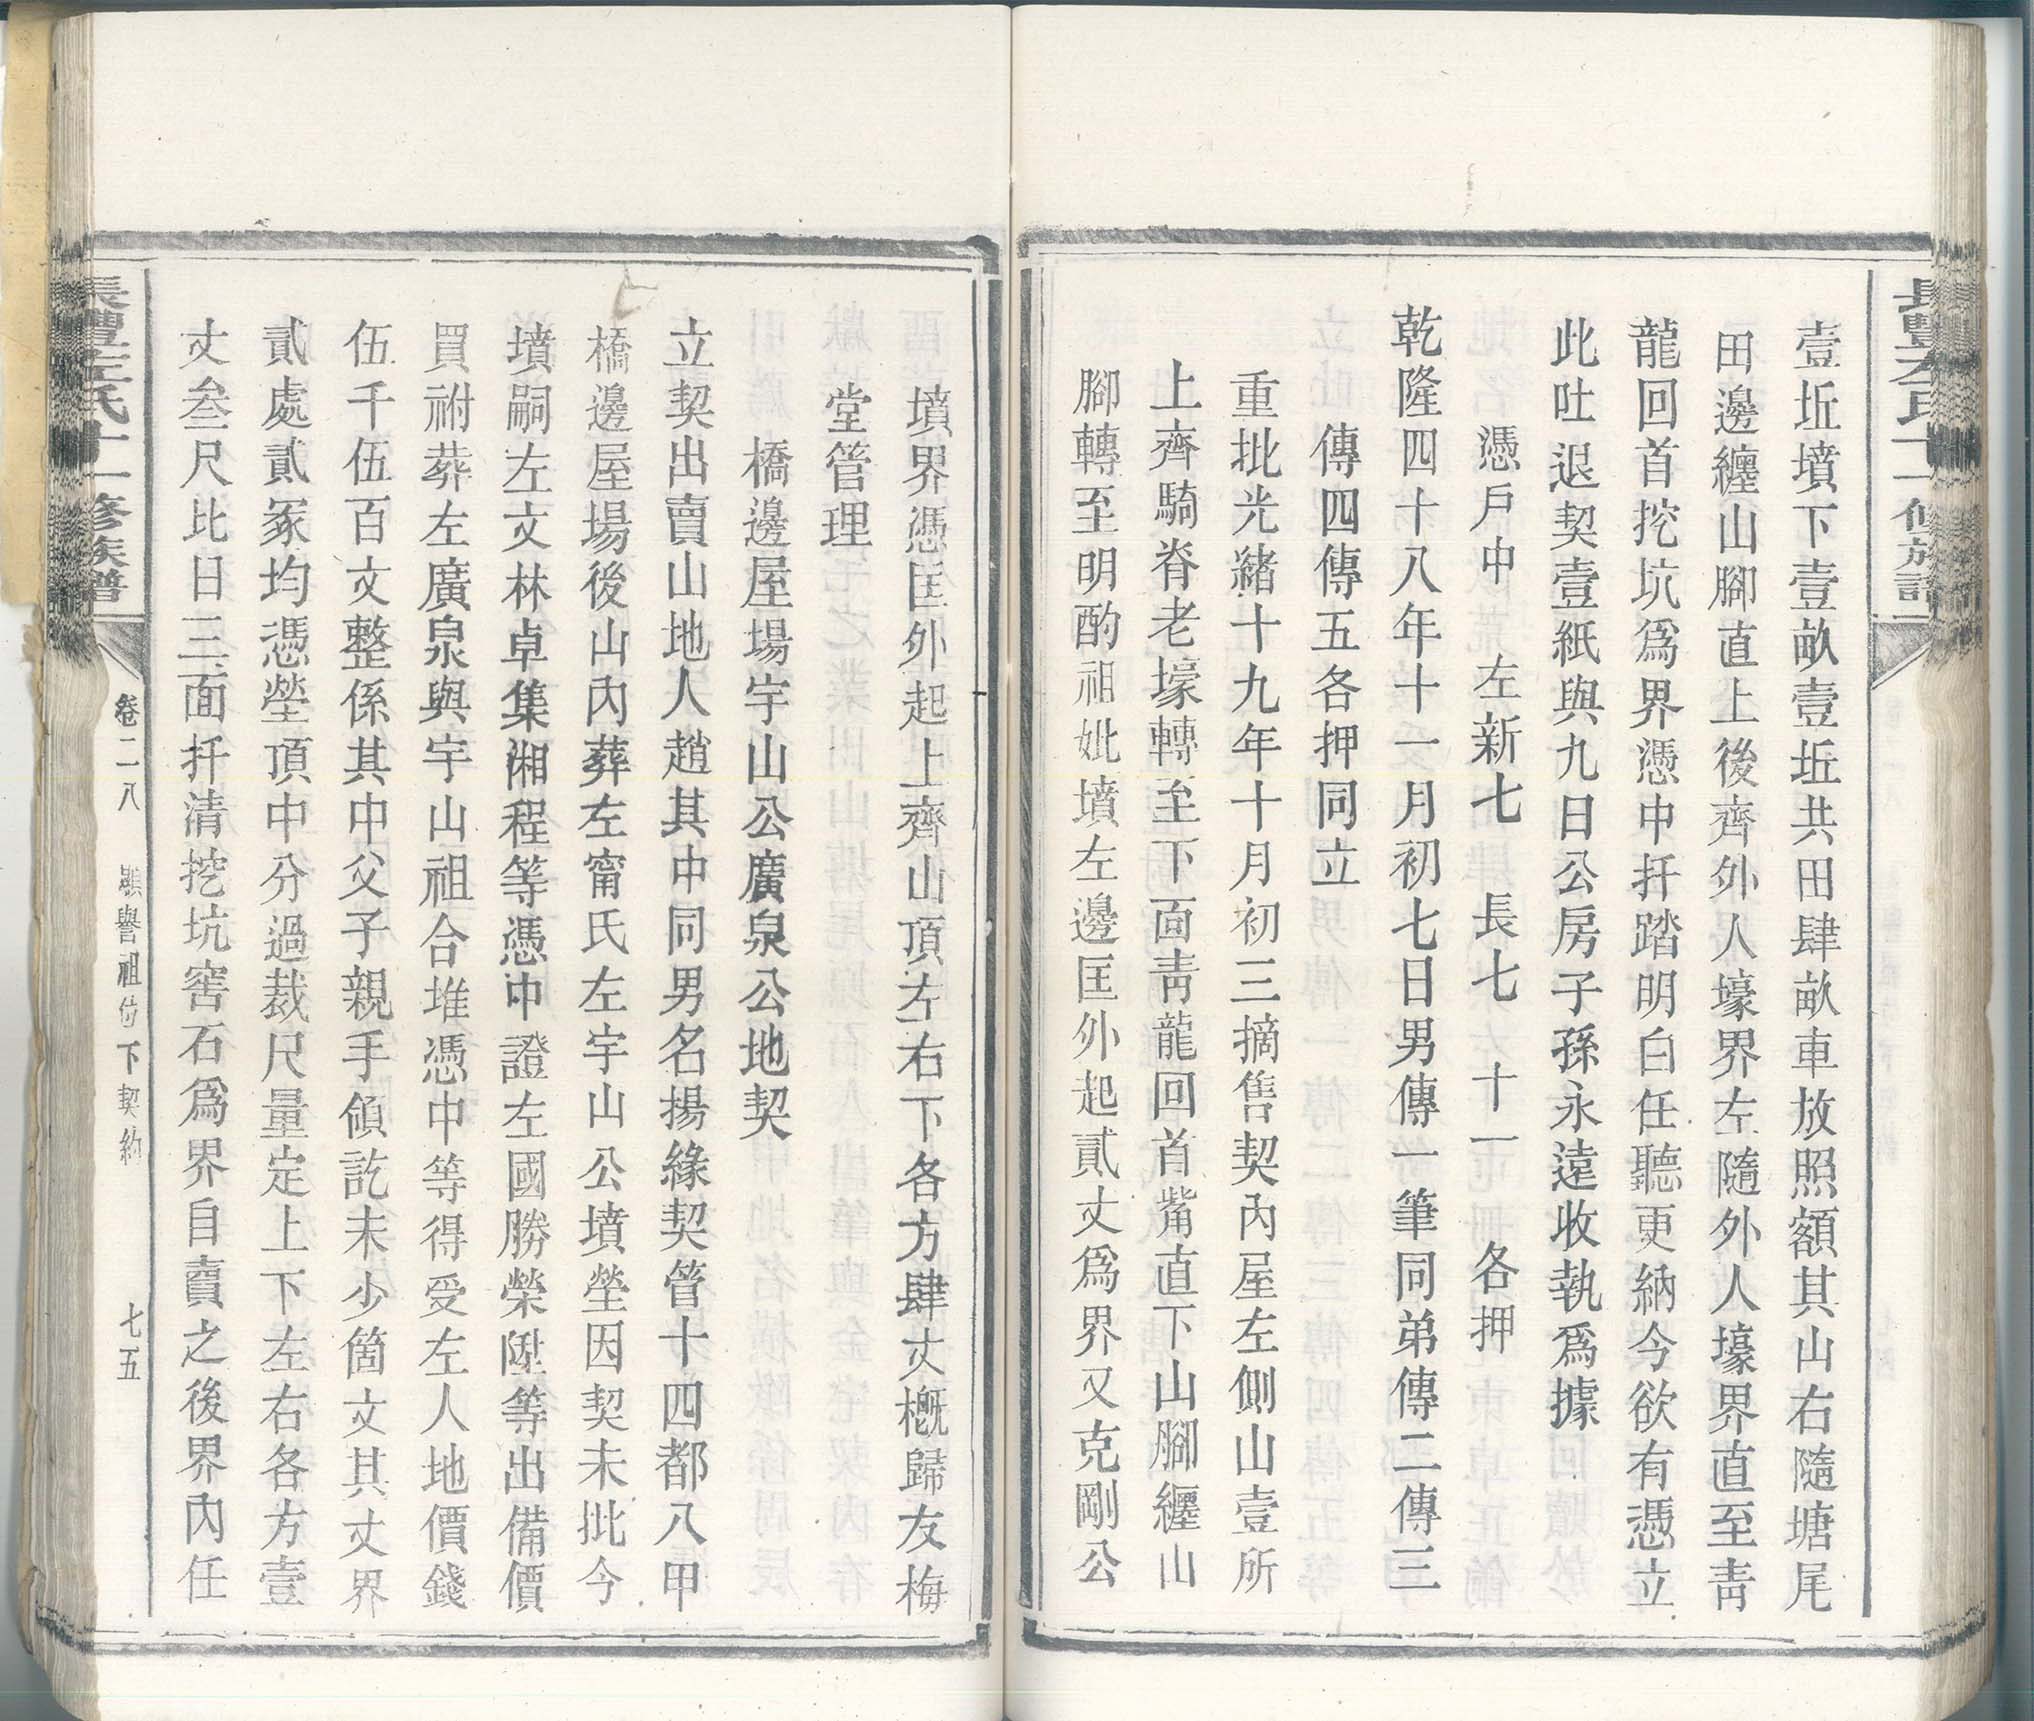 長豐左氏十一修族譜
壹坵墳下壹畝壹坵共田肆畝車放照額其山右隨塘尾
田邊纏山腳直上後齊外人壕界左隨外人壕界直至靑
龍回首挖坑爲界憑中扦踏明白任聽更納今欲有憑立
此吐退契壹紙與九日公房子孫永遠收執爲據
憑戶中 左新七 長七 十一 各押
乾隆四十八年十一月初七日男傳一筆同弟傳二傳三
傳四傳五各押同立
重批光緒十九年十月初三摘售契內屋左側山壹所
上齊騎脊老壕轉至下面靑龍回首嘴直下山腳纏山
腳轉至明酌祖妣墳左邊匡外起貳丈爲界又克剛公
墳界憑匡外起上齊山頂左右下各方肆丈槪歸友梅
堂管理
橋邊屋場宇山公廣泉公地契
立契出賣山地人趙其中同男名揚緣契管十四都八甲
橋邊屋場後山內葬左甯氏左宇山公墳塋因契未批今
墳嗣左文林卓集湘程等憑中證左國勝榮陞等出備價
買祔葬左廣泉與宇山祖合堆憑中等得受左人地價錢
伍千伍百文整係其中父子親手領訖未少箇文其丈界
貳處貳冢均憑塋頂中分過裁尺量定上下左右各方壹
丈叁尺比日三面扦清挖坑窖石爲界自賣之後界內任
長豐左氏十一修族譜
卷二八 顯譽祖位下契約 七五